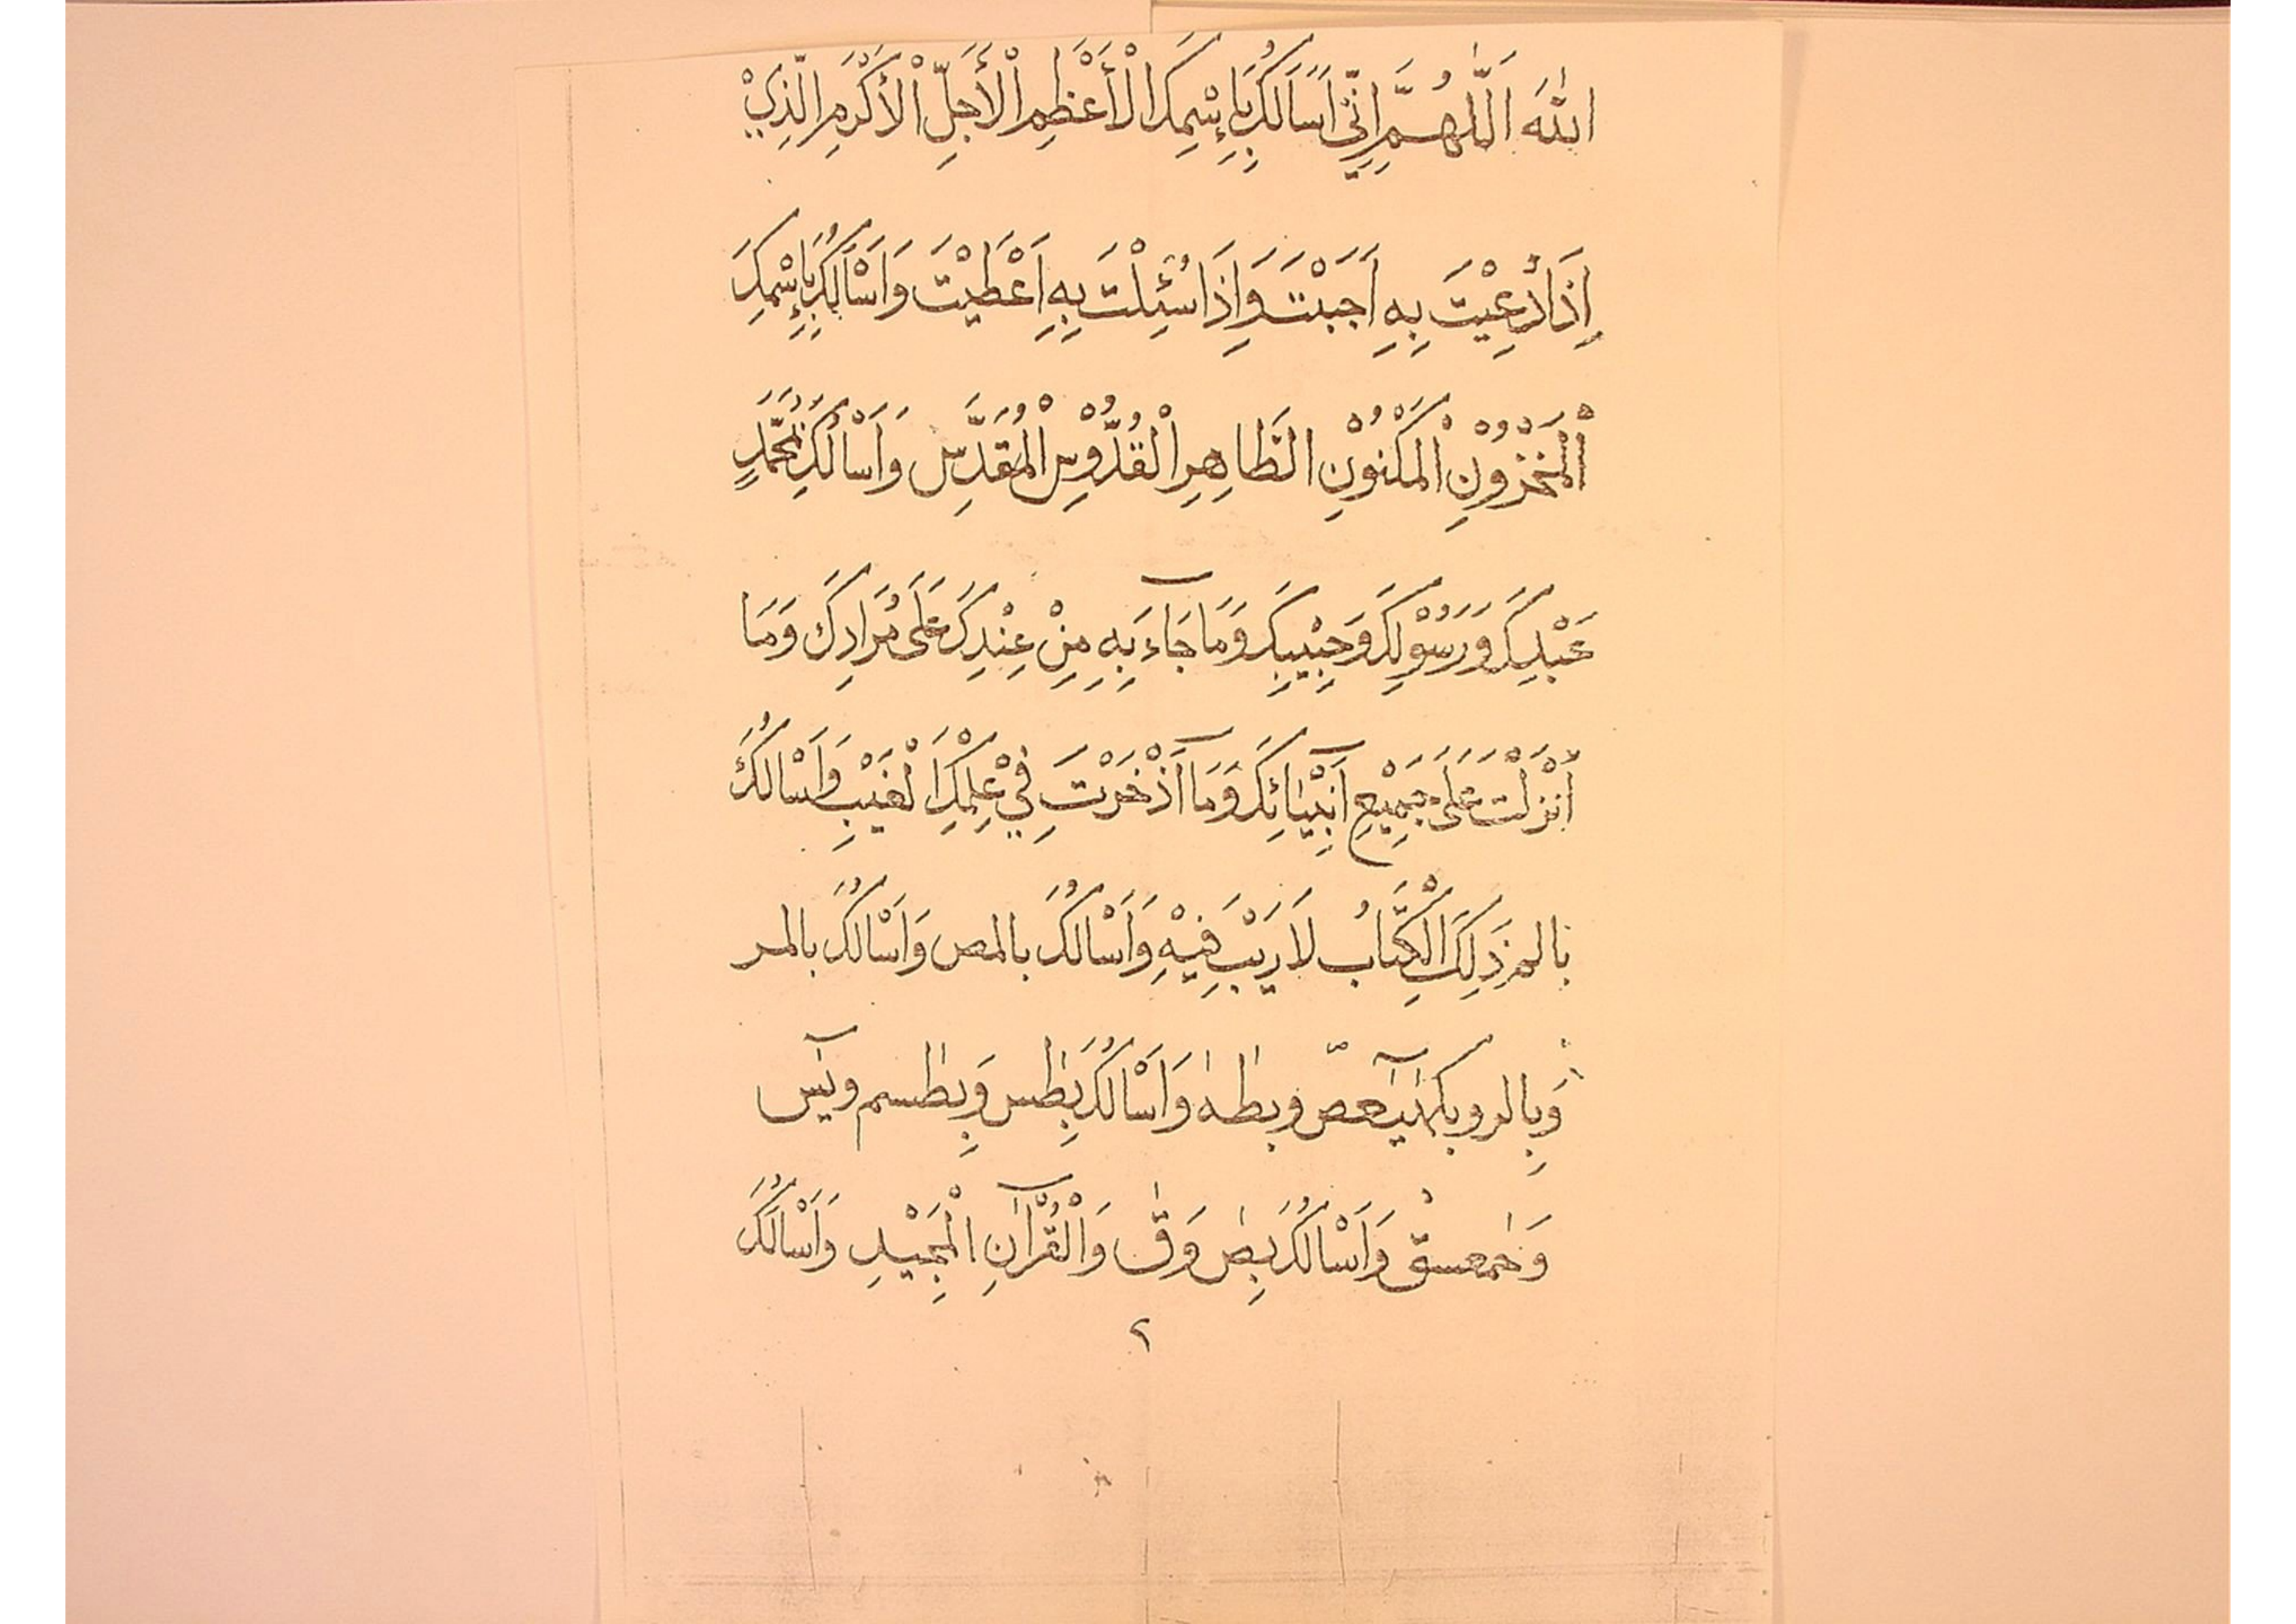 اللهَ اَللّٰهُمَّ اِنِّيْ اَسَالُكَ بِاِسْمِكَ الْأَعْظَمِ الْأَجَلِّ الْأَكْرَمِ الَّذِيْ
اِذَا دُعِيْتَ بِهِ اَجَبْتَ وَاِذَا سُئِلْتَ بِهِ اَعْطَيْتَ وَاَسْأَلُكَ بِاِسْمِكَ
اَلْمَخْزُوْنِ الْمَكْنُوْنِ الطَّاهِرِ الْقُدُّوْسِ الْمُقَدَّسِ وَاَسْأَلُكَ بِمُحَمَّدٍ
عَبْدِكَ وَرَسُوْلِكَ وَحَبِيْبِكَ وَمَا جَآءَ بِهِ مِنْ عِنْدِكَ عَلَى مُرَادِكَ وَمَا
أَنْزَلْتَ عَلَى جَمِيْعِ اَنْبِيَآئِكَ وَمَا آذْخَرْتَ فِيْ عِلْمِكَ الْغَيْبِ وَاَسْالُكَ
بالم ذَلِكَ الْكِتَابُ لَا رَيْبَ فِيْهِ وَاَسْالُكَ بالمص وَاَسْالُكَ بالمر
وَبِالر وبكهٰيٰعٓصّ وبطٰهٰ وَاَسْالُكَ بِطٰس وَبِطٰسم ويٰسٓ
وَحٰمعسق وَاَسْالُكَ بِصٰ وَقٰ وَالْقُرْآنِ الْمَجِيْدِ وَاَسْالُكَ
٢